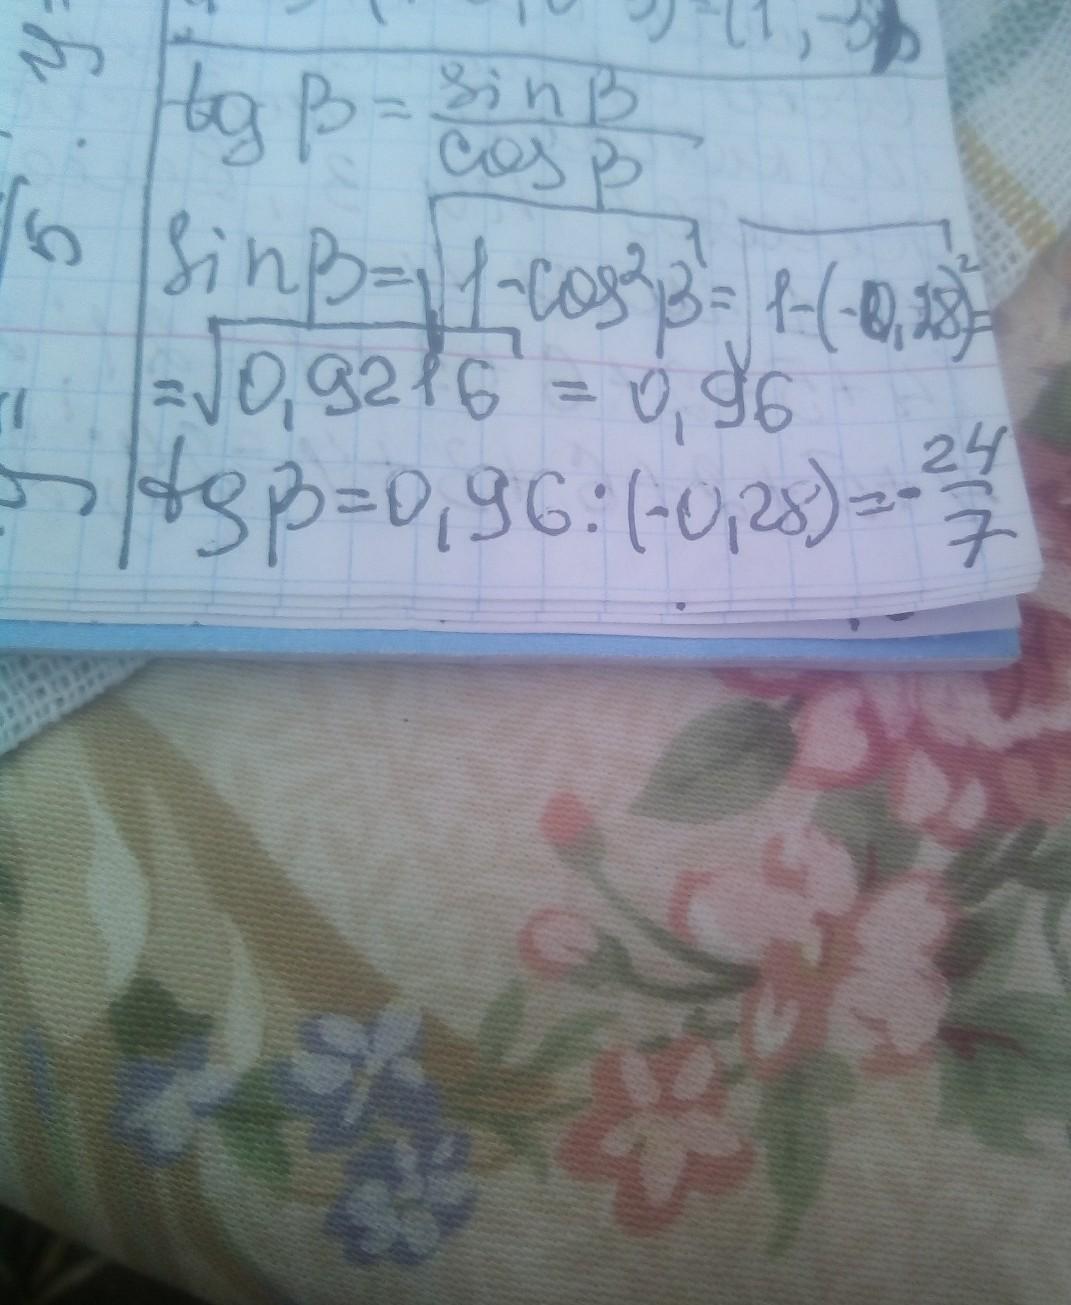 tg β = sin β / cos β
sin β = √1-cos²β = √1-(-0,28)² =
= √0,9216 = 0,96
tg β = 0,96 : (-0,28) = - 24/7